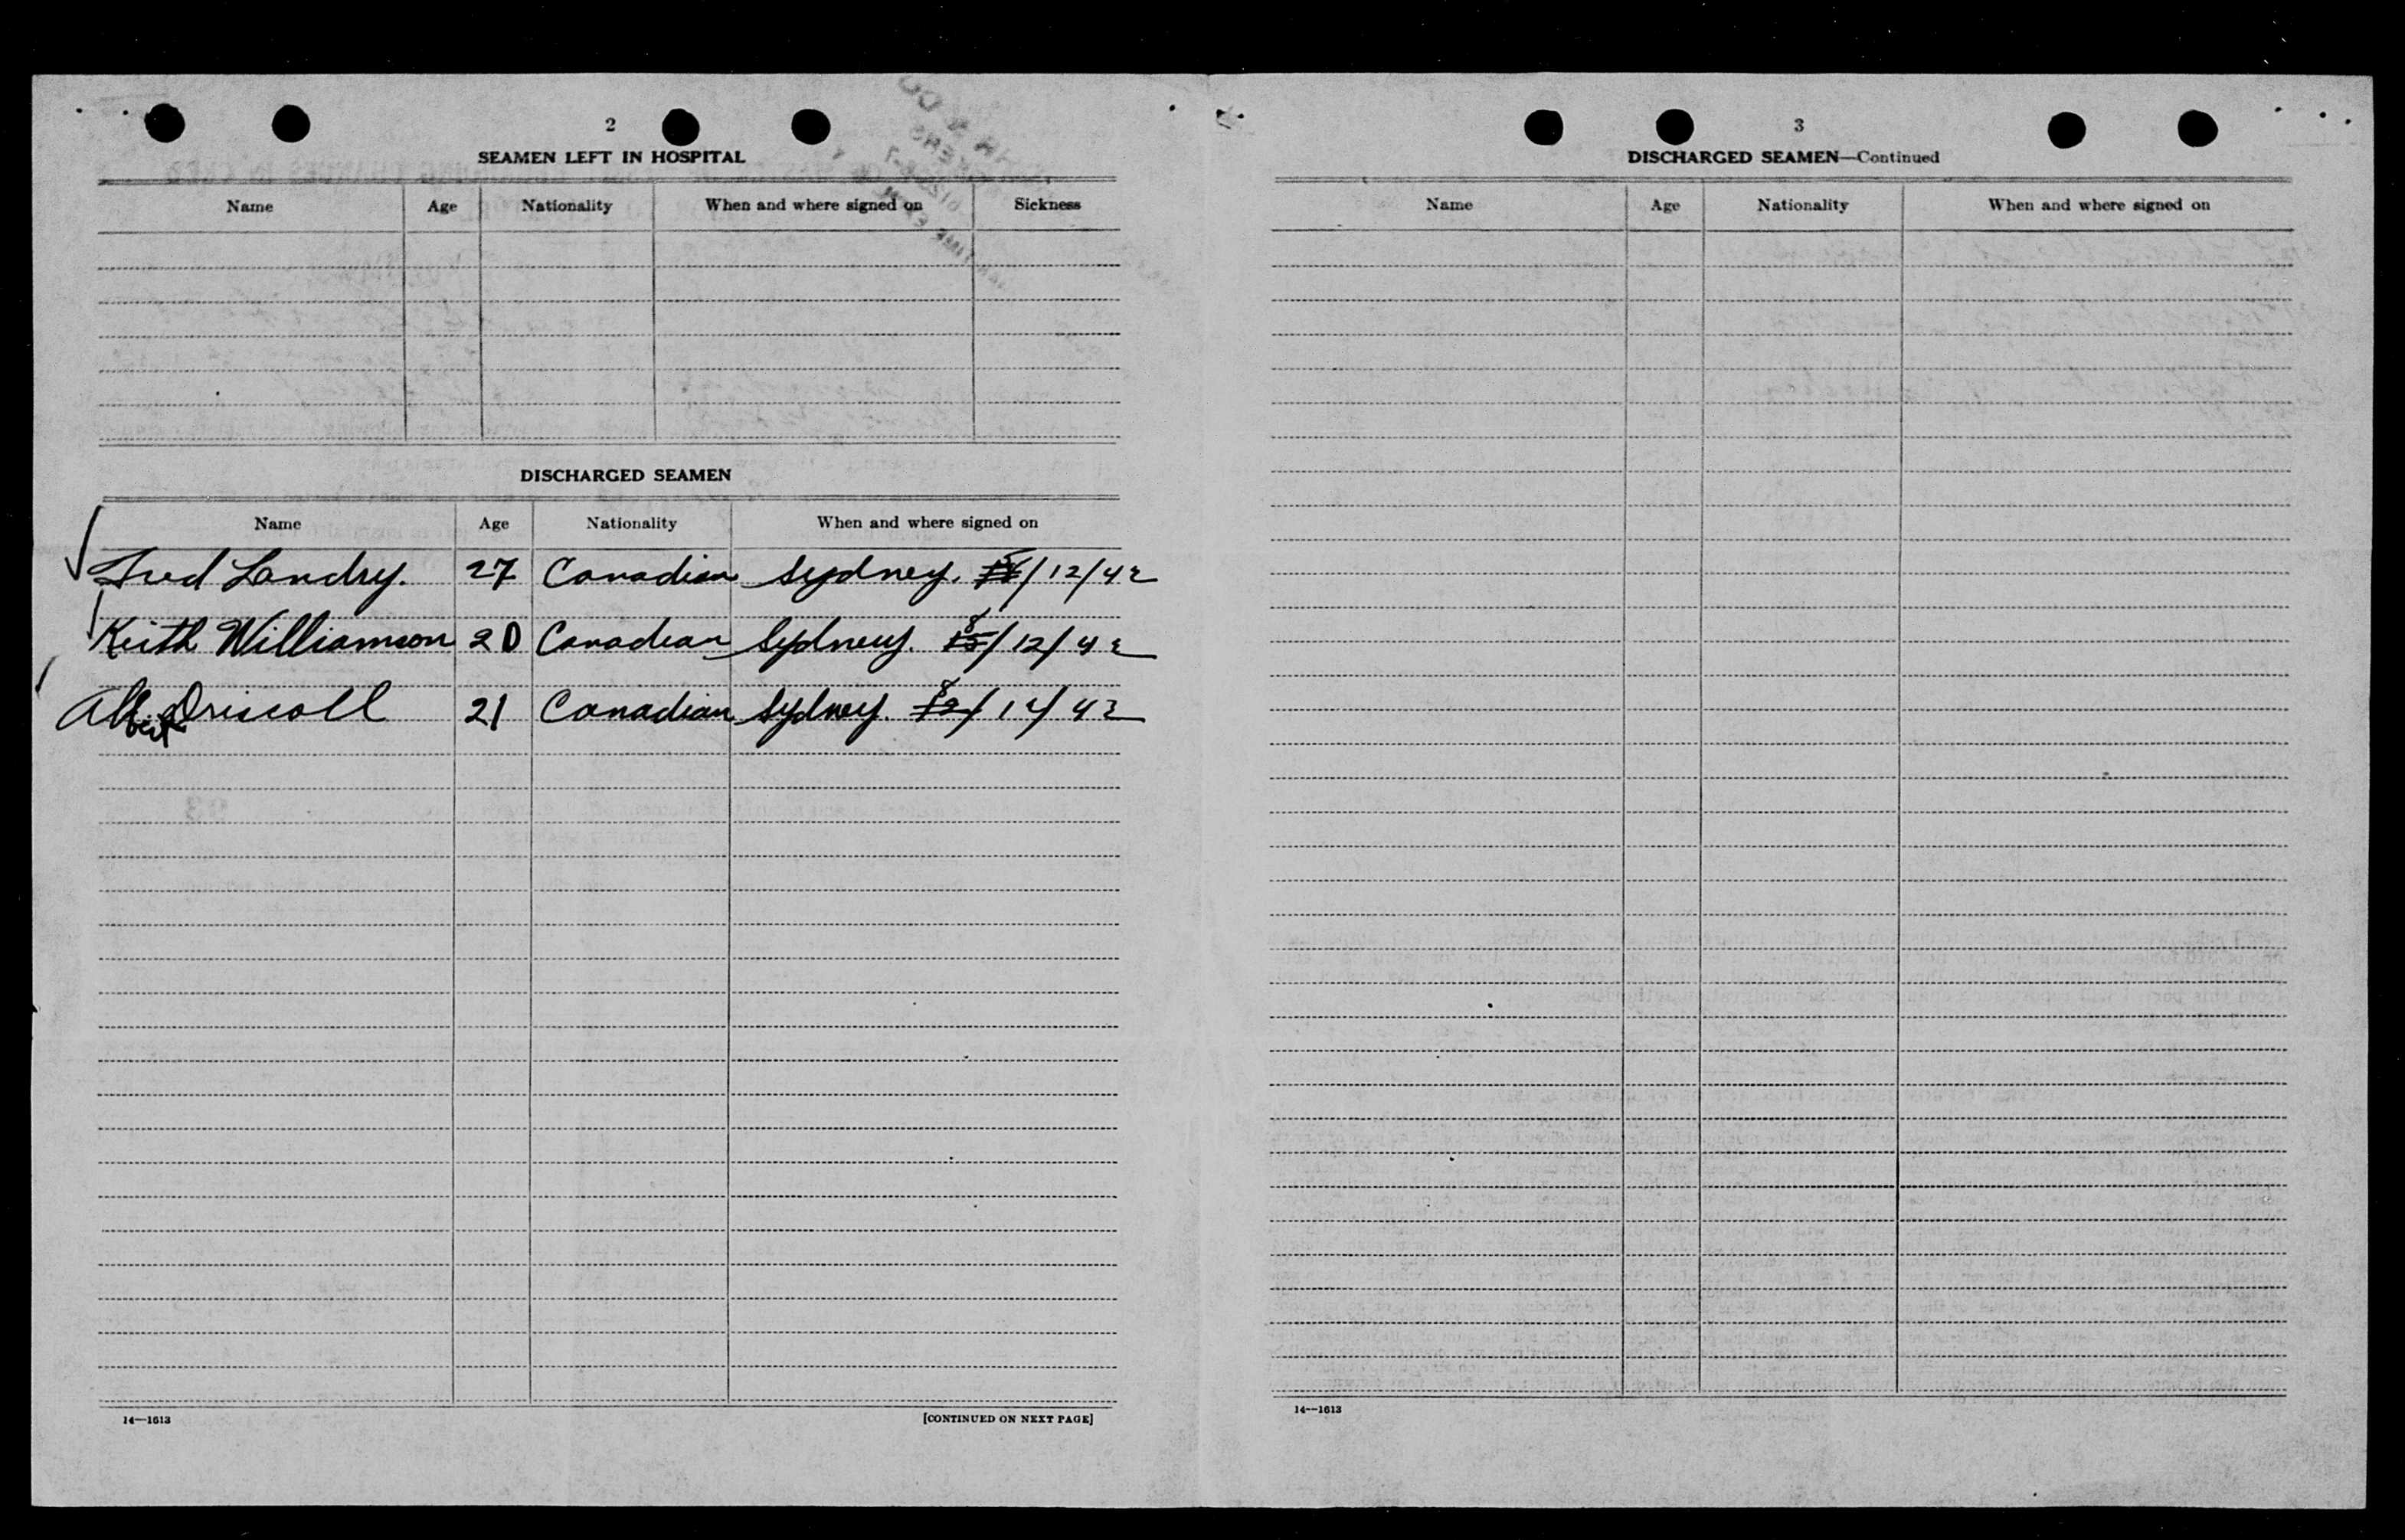 2
SEAMEN LEFT IN HOSPITAL
Name Age Nationality When and where signed on Sickness
DISCHARGED SEAMEN
Name Age Nationality When and where signed on
Fred Landry. 27 Canadian Sydney. /12/42
Keith Williamson 20 Canadian Sydney. 8/12/42
Albert Driscoll 21 Canadian Sydney. 8/12/42
14—1613 [CONTINUED ON NEXT PAGE]
3
DISCHARGED SEAMEN—Continued
Name Age Nationality When and where signed on
14—1613